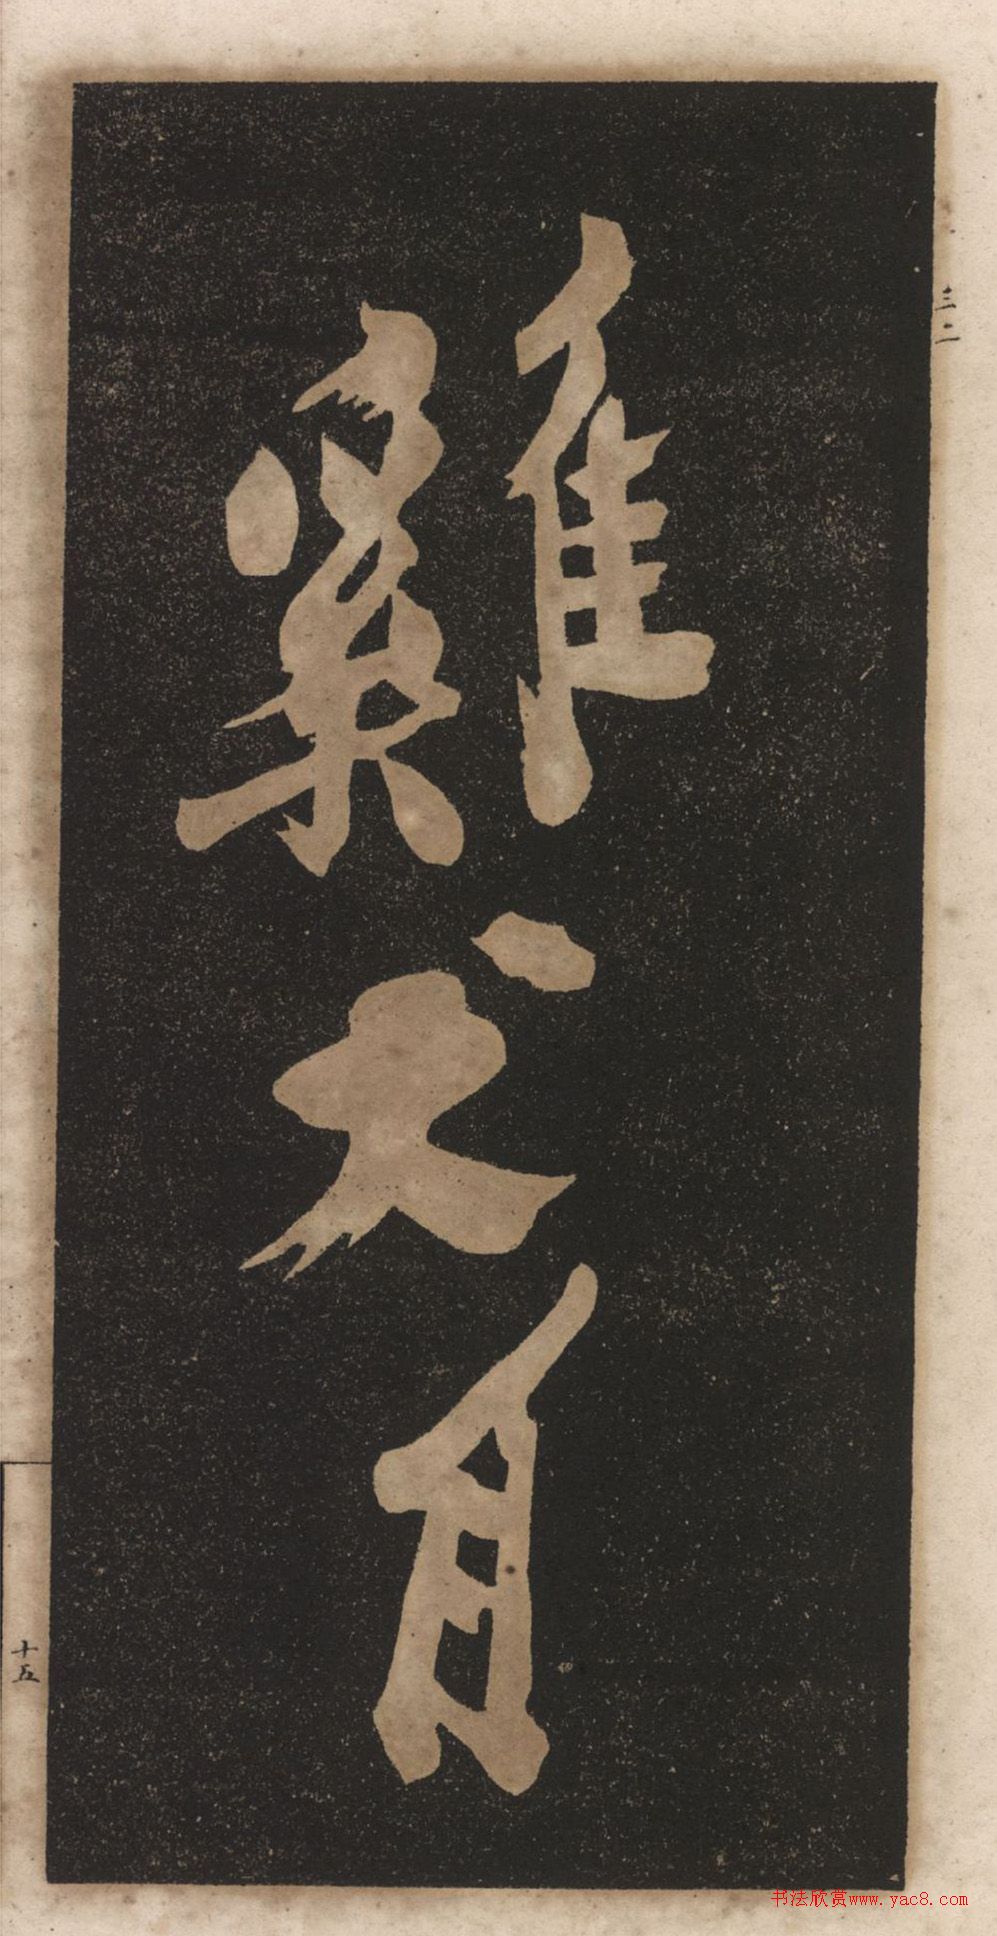 三・二
雞犬自
十五
书法欣赏www.yac8.com